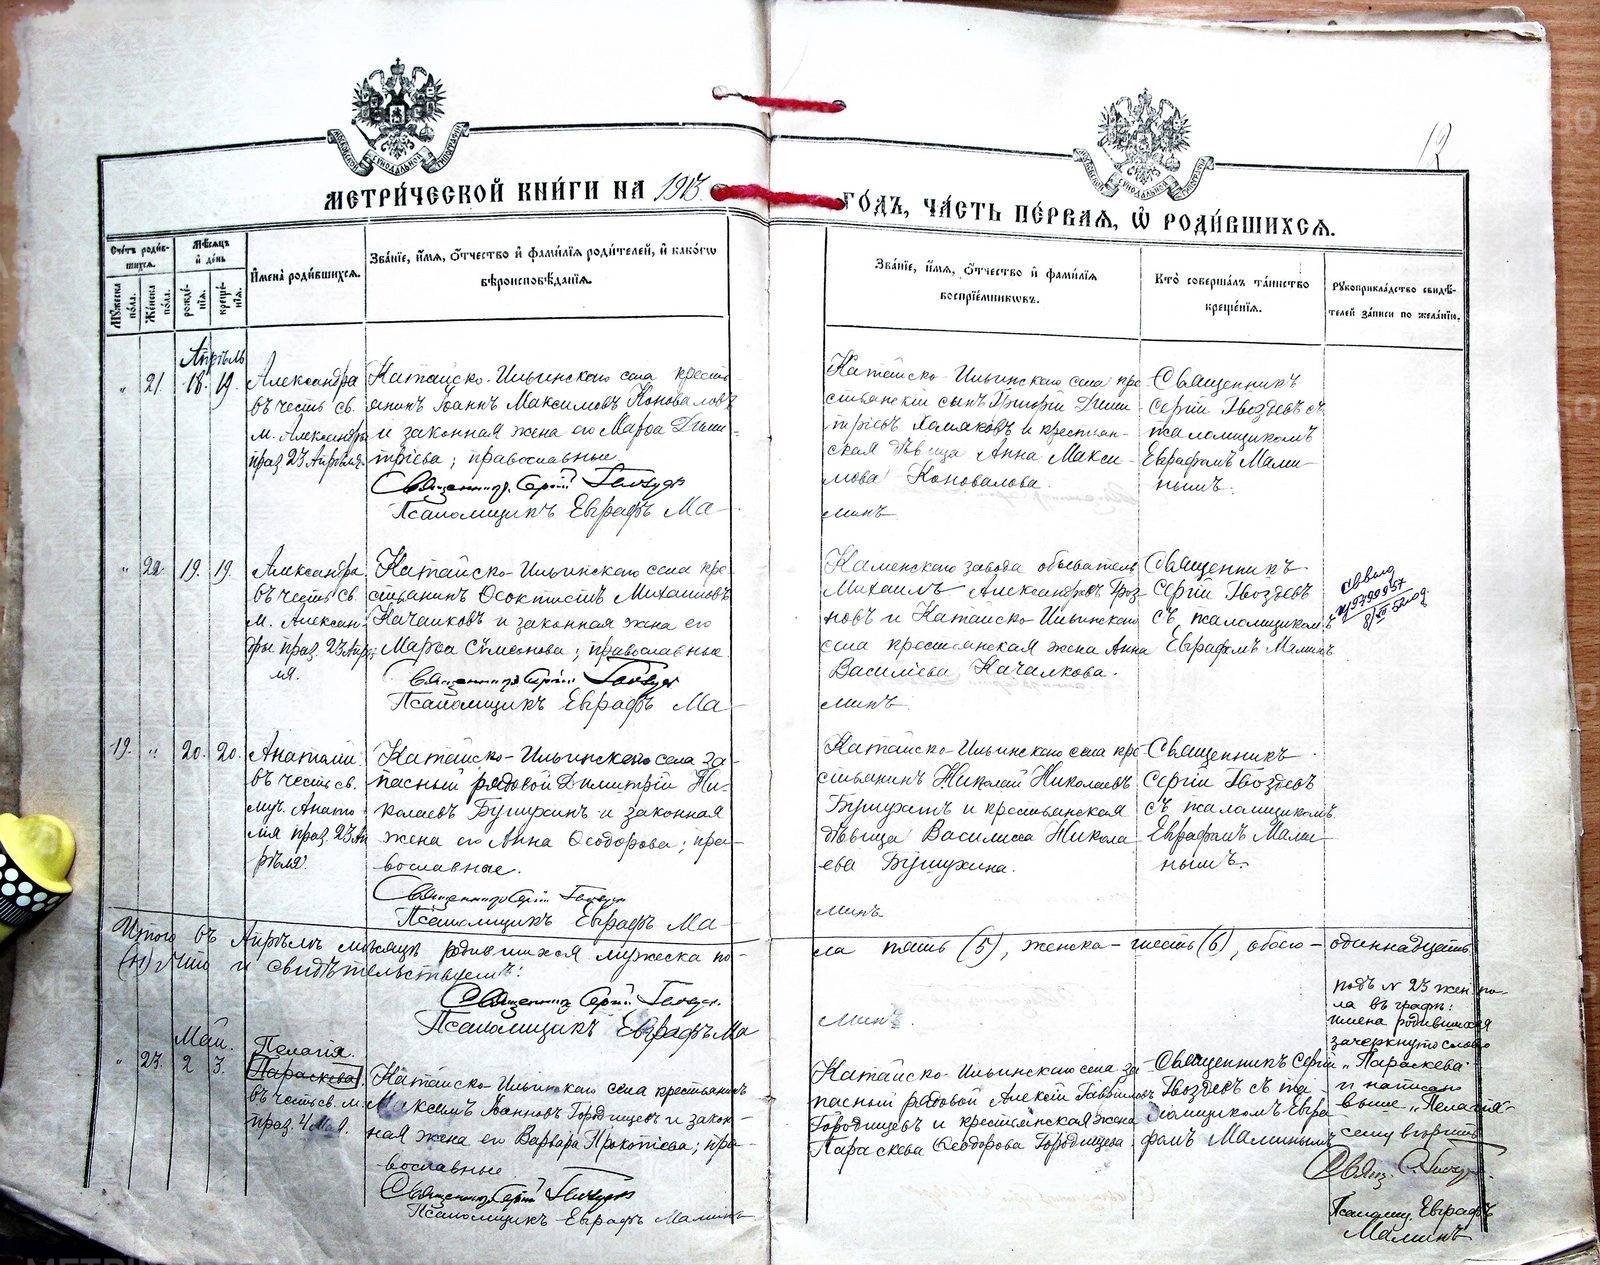 12
МЕТРИ́ЧЕСКОЙ КНИ́ГИ НА 1913
ГО́ДЪ, ЧА́СТЬ ПЕ́РВАЯ, Ѡ҆ РОДИ́ВШИХСЯ.
Счетъ роди́вшихся.
Му́жеска по́ла.
Же́нска по́ла.
Мѣ́сяцъ и҆ де́нь
рожде́нія.
креще́нія.
И҆мена̀ роди́вшихся.
Зва́ніе, и҆́мя, ѻ҆́тчество и҆ фами́лія роди́телей, и҆ како́гѡ
вѣроисповѣ́данія.
Зва́ніе, и҆́мя, ѻ҆́тчество и҆ фами́лія
воспріе́мникѡвъ.
Кто̀ соверша́лъ та́инство
креще́нія.
Рукоприкла́дство свидѣ́-
телей за́писи по жела́нію.
Апрѣль
" 21. 18. 19.
Александра
въ честь св.
м. Александры
праз. 23 Апрѣля.
Катайско-Ильинскаго села кресть-
янинъ Іоаннъ Максимовъ Коноваловъ
и законная жена его Марѳа Дими-
тріева; православные.
Священникъ Сергій Гвоздевъ
Псаломщикъ Евграфъ Ма-
Катайско-Ильинскаго села кре-
стьянскій сынъ Григорій Дими-
тріевъ Хомяковъ и крестьян-
ская дѣвица Анна Макси-
мова Коновалова.
минъ
Священникъ
Сергій Гвоздевъ съ
псаломщикомъ
Евграфомъ Мами-
нымъ.
" 22. 19. 19.
Александра
въ честь св.
м. Алексан-
дры праз. 23 Апрѣ-
ля.
Катайско-Ильинскаго села кре-
стьянинъ Ѳеоктистъ Михаиловъ
Качалковъ и законная жена его
Марѳа Симеонова; православные
Священникъ Сергій Гвоздевъ
Псаломщикъ Евграфъ Ма-
Каменскаго завода обыватель
Михаилъ Александровъ Гроз-
новъ и Катайско-Ильинскаго
села крестьянская жена Анна
Василіева Качалкова.
минъ
Священникъ
Сергій Гвоздевъ
съ псаломщикомъ
Евграфомъ Маминъ
19. " 20. 20.
Анатолій
въ честь св.
муч. Анато-
лія праз. 23 Ап-
рѣля.
Катайско-Ильинскаго села за-
пасный рядовой Димитрій Ни-
колаевъ Бушухинъ и законная
жена его Анна Ѳеодорова; пра-
вославные.
Священникъ Сергій Гвоздевъ
Псаломщикъ Евграфъ Ма-
Катайско-Ильинскаго села кре-
стьянинъ Николай Николаевъ
Бушухинъ и крестьянская
дѣвица Василисса Никола-
ева Бушухина.
минъ
Священникъ
Сергій Гвоздевъ
съ псаломщикомъ
Евграфомъ Мами-
нымъ.
Итого въ Апрѣлѣ мѣсяцѣ родившихся мужеска по-
ла пять (5), женска - шесть (6), обоего - одиннадцать
(11) Что и свидѣтельствуемъ:
Священникъ Сергій Гвоздевъ.
Псаломщикъ Евграфъ Ма
минъ.
Май.
" 23. 2 3.
Пелагія.
Параскева
въ честь св. м.
праз. 4 Мая.
Катайско-Ильинскаго села крестьянинъ
Максимъ Іоанновъ Городищевъ и закон-
ная жена его Варвара Прокопіева; пра-
вославные
Священникъ Сергій Гвоздевъ
Псаломщикъ Евграфъ Маминъ
Катайско-Ильинскаго села за-
пасный рядовой Алексій Гавриловъ
Городищевъ и крестьянская жена
Параскева Ѳеодорова Городищева
Священникъ Сергій
Гвоздевъ съ пса-
ломщикомъ Евгра-
фомъ Маминымъ
подъ № 23 жен. по-
ла въ графѣ:
имена родившихся
зачеркнуто слово
"Параскева"
и написано
выше "Пелагія"
сему вѣрить
Свящ. С. Гвоздевъ.
Псаломщ. Евграфъ
Маминъ